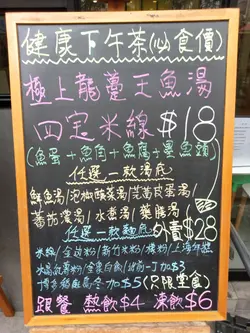 健康下午茶(必食價)
極上龍躉王魚湯
四宝米線$18
(魚蛋+魚角+魚腐+墨魚頭)
任選一款湯底
鮮魚湯/泡椒酸菜湯/芫荽皮蛋湯
蕃茄濃湯/水煮湯/藥膳湯
任選一款麵底 外賣$28
米線/金边粉/新竹米粉/
+$3
+$5(只限堂食)
跟餐 熱飲$4 凍飲$6